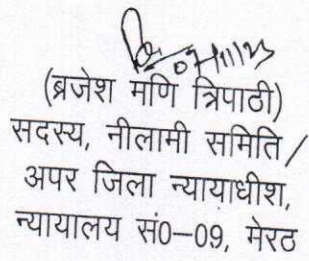 07/11/23
(ब्रजेश मणि त्रिपाठी)
सदस्य, नीलामी समिति/
अपर जिला न्यायाधीश,
न्यायालय सं0–09, मेरठ